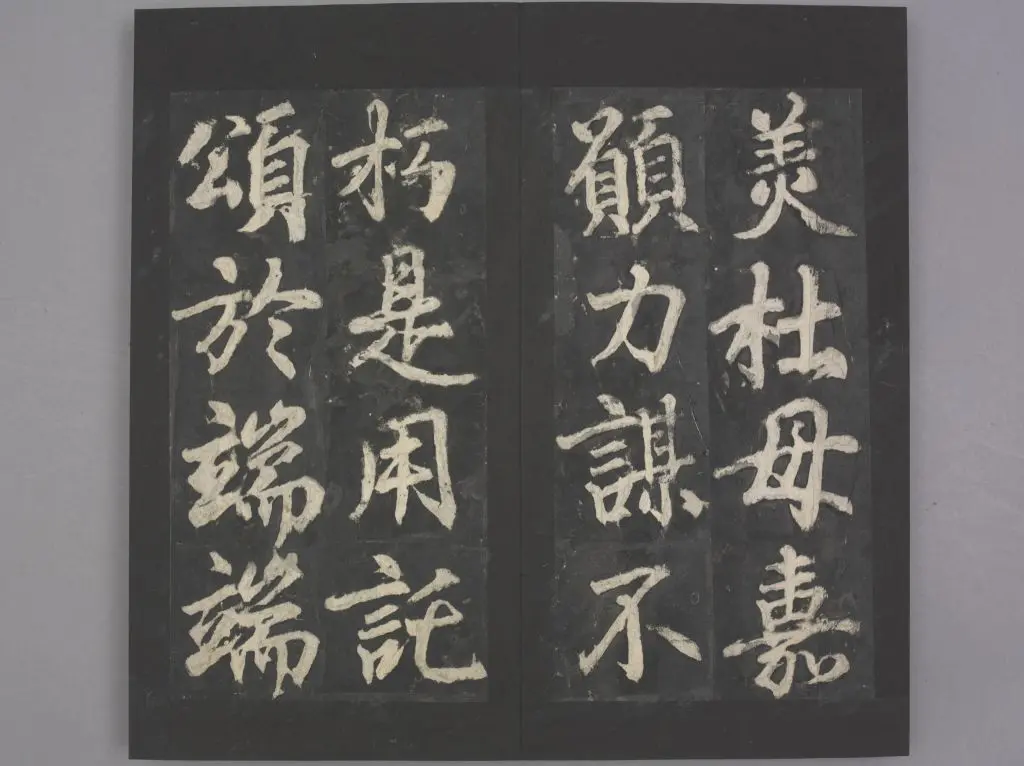 羙杜母嘉
願力謀不
朽是用託
頌於端端